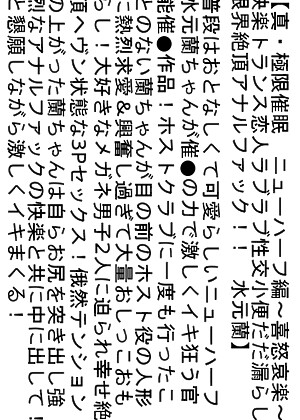 【真・極限催眠　ニューハーフ編～喜怒哀楽～
快楽トランス恋人ラブラブ性交小便だだ漏らし
限界絶頂アナルファック！！　水元蘭】
普段はおとなしくて可愛らしいニューハーフ
水元蘭ちゃんが催●の力で激しくイキ狂う官
能催●作品！ホストクラブに一度も行ったこ
とのない蘭ちゃんが目の前のホスト役の人形
に熱烈求愛&興奮し過ぎて大量おしっこおも
らし！大好きなメガネ男子2人に迫られ幸せ絶
頂ヘヴン状態な3Pセックス！俄然テンション
の上がった蘭ちゃんは自らお尻を突き出し強
烈なアナルファックの快楽と共に中に出して！
と懇願しながら激しくイキまくる！